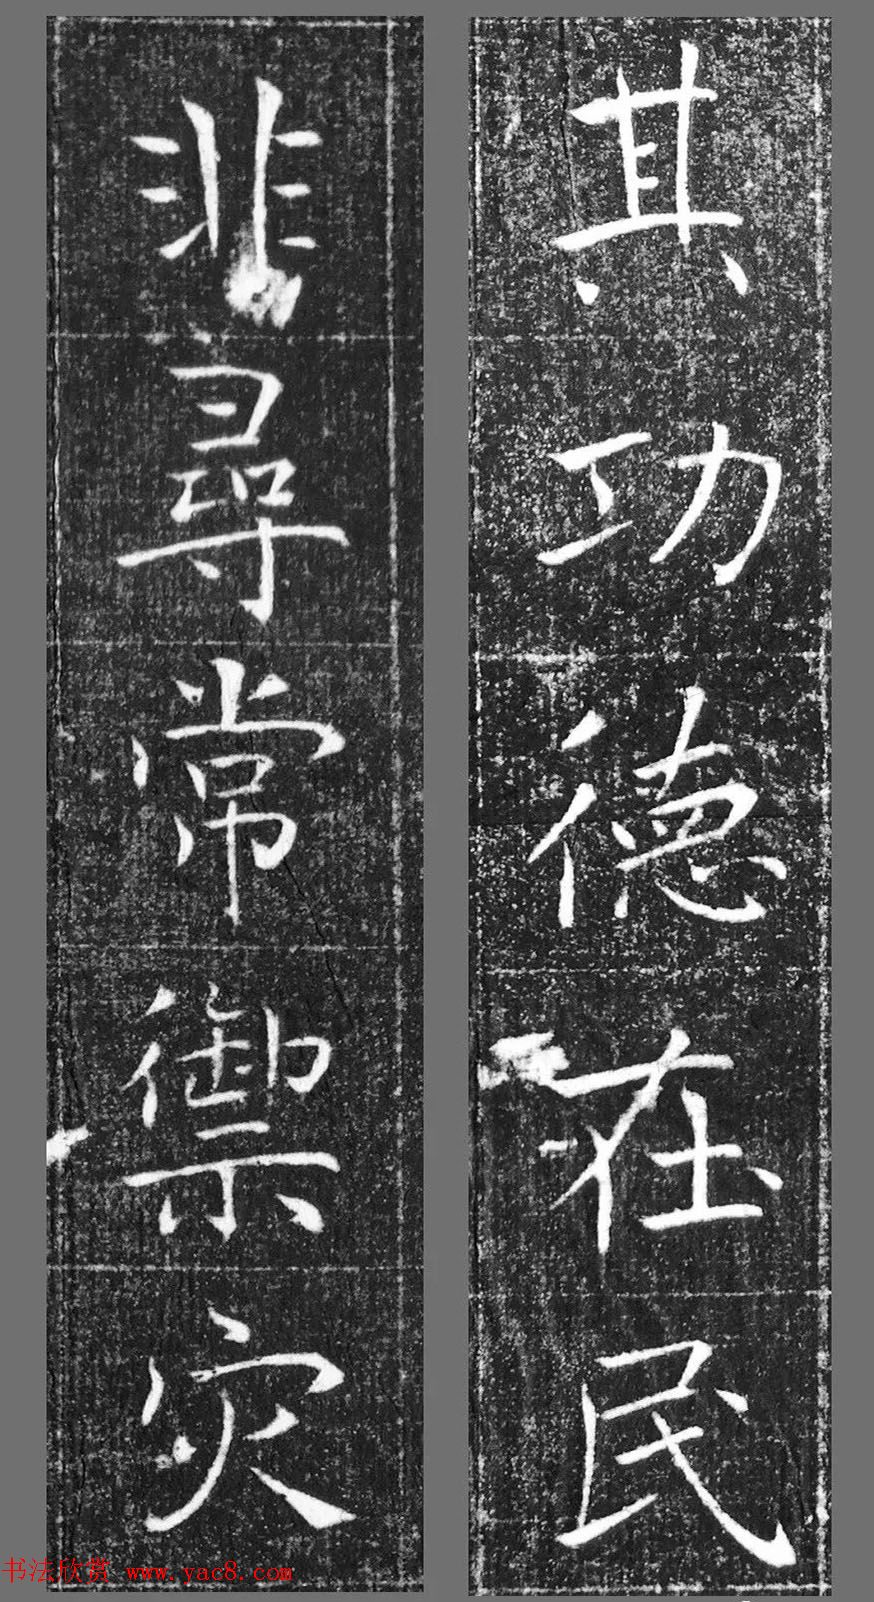 其功德在民
非尋常禦灾
书法欣赏 www.yac8.com